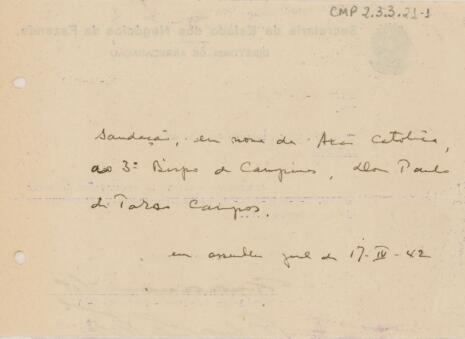 CMP 2.3.3.21-1
Secretaria de Estado dos Negócios da Fazenda
DIRETORIA DE ARRECADAÇÃO
Saudação, em nome da Ação Catolica,
ao 3º Bispo de Campinas, Dom Paulo
de Tarso Campos.
em assembl geral de 17-IV-42